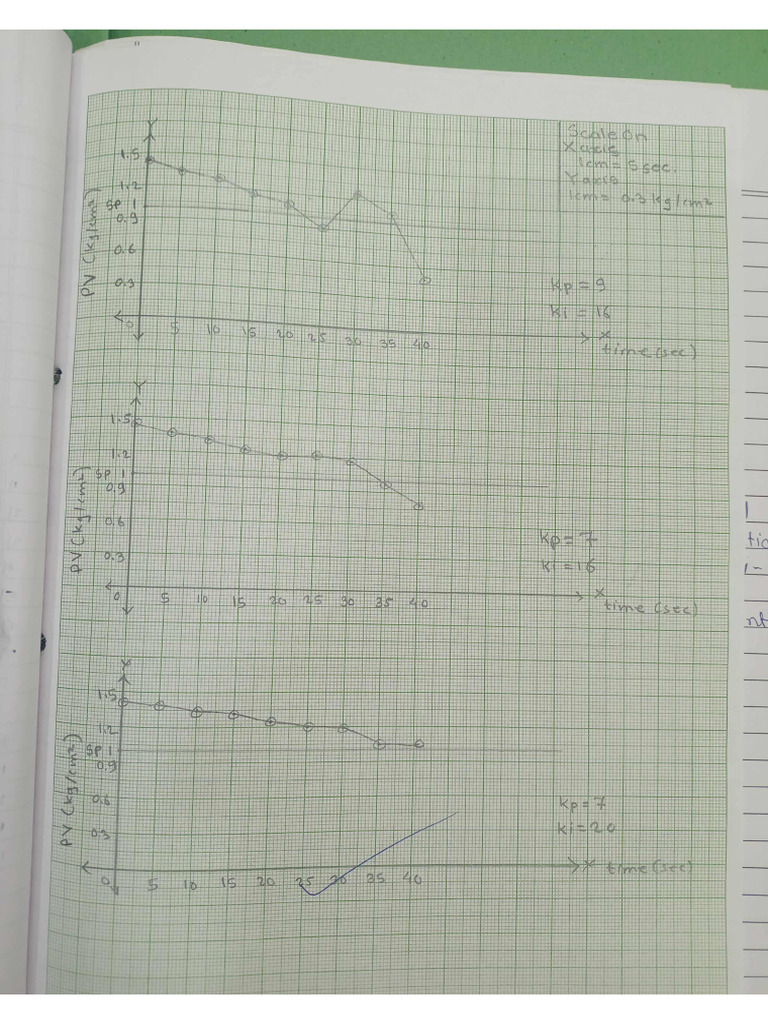 Scale on
X axis
1cm = 5 sec.
Y axis
1cm = 0.3 kg/cm²
Y
1.5
1.2
SP 1
0.9
0.6
0.3
0
PV (kg/cm²)
5 10 15 20 25 30 35 40
X
time (sec)
Kp = 9
Ki = 16
Y
1.5
1.2
SP 1
0.9
0.6
0.3
0
PV (kg/cm²)
5 10 15 20 25 30 35 40
X
time (sec)
Kp = 7
Ki = 16
Y
1.5
1.2
SP 1
0.9
0.6
0.3
0
PV (kg/cm²)
5 10 15 20 25 30 35 40
X
time (sec)
Kp = 7
Ki = 20